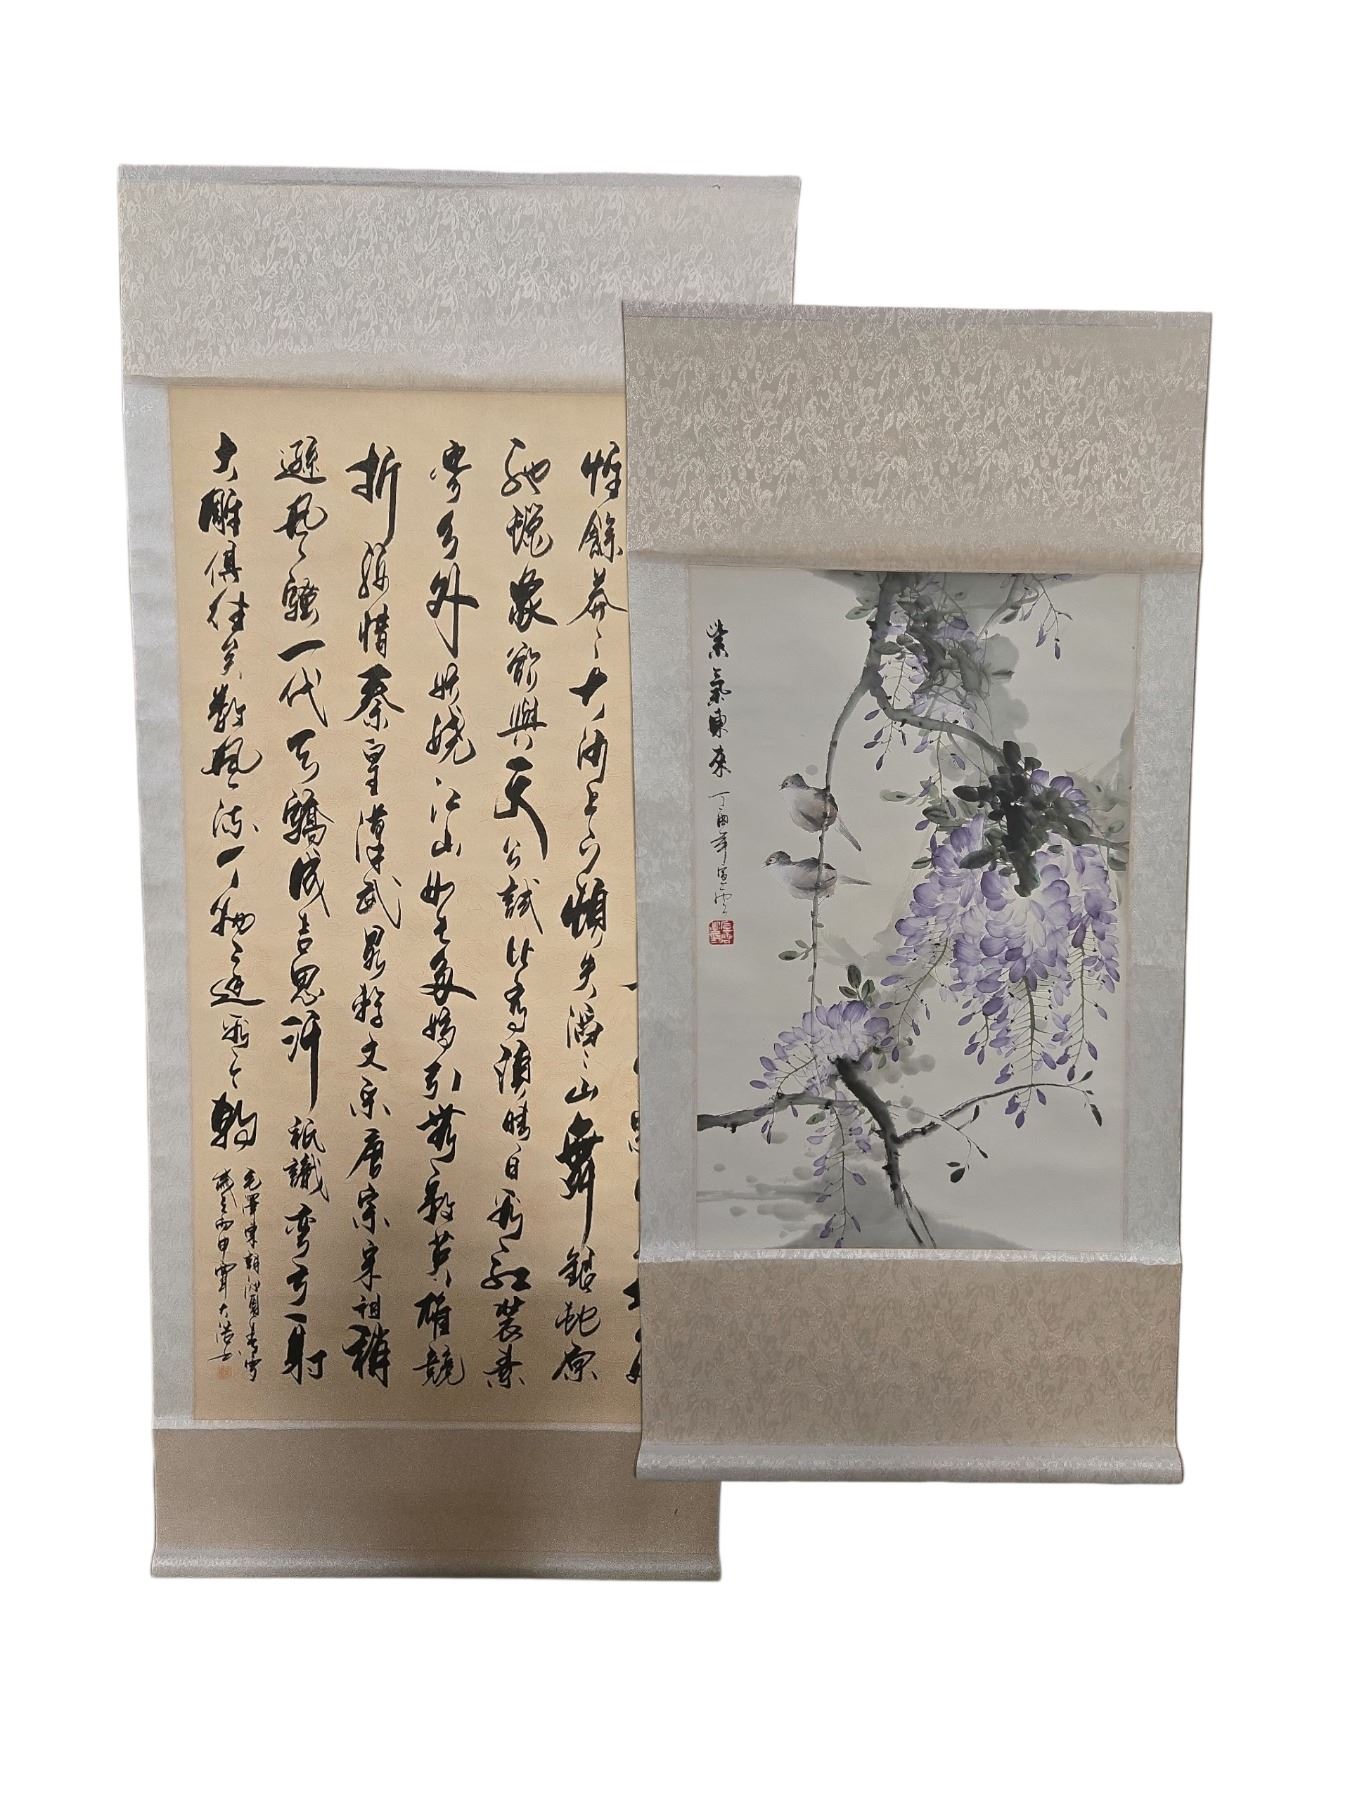 紫氣東來
丁酉年
惟餘莽々大河上下頓失滔々山舞銀蛇原
馳蠟象欲與天公試比高須晴日看紅裝素
裹分外妖嬈江山如此多嬌引無數英雄競
折腰惜秦皇漢武略輸文采唐宗宋祖稍
遜風騷一代天驕成吉思汗祇識彎弓射
大雕俱往矣數風流人物還看今朝
毛澤東詞沁園春雪
歲在丙申年大浩书